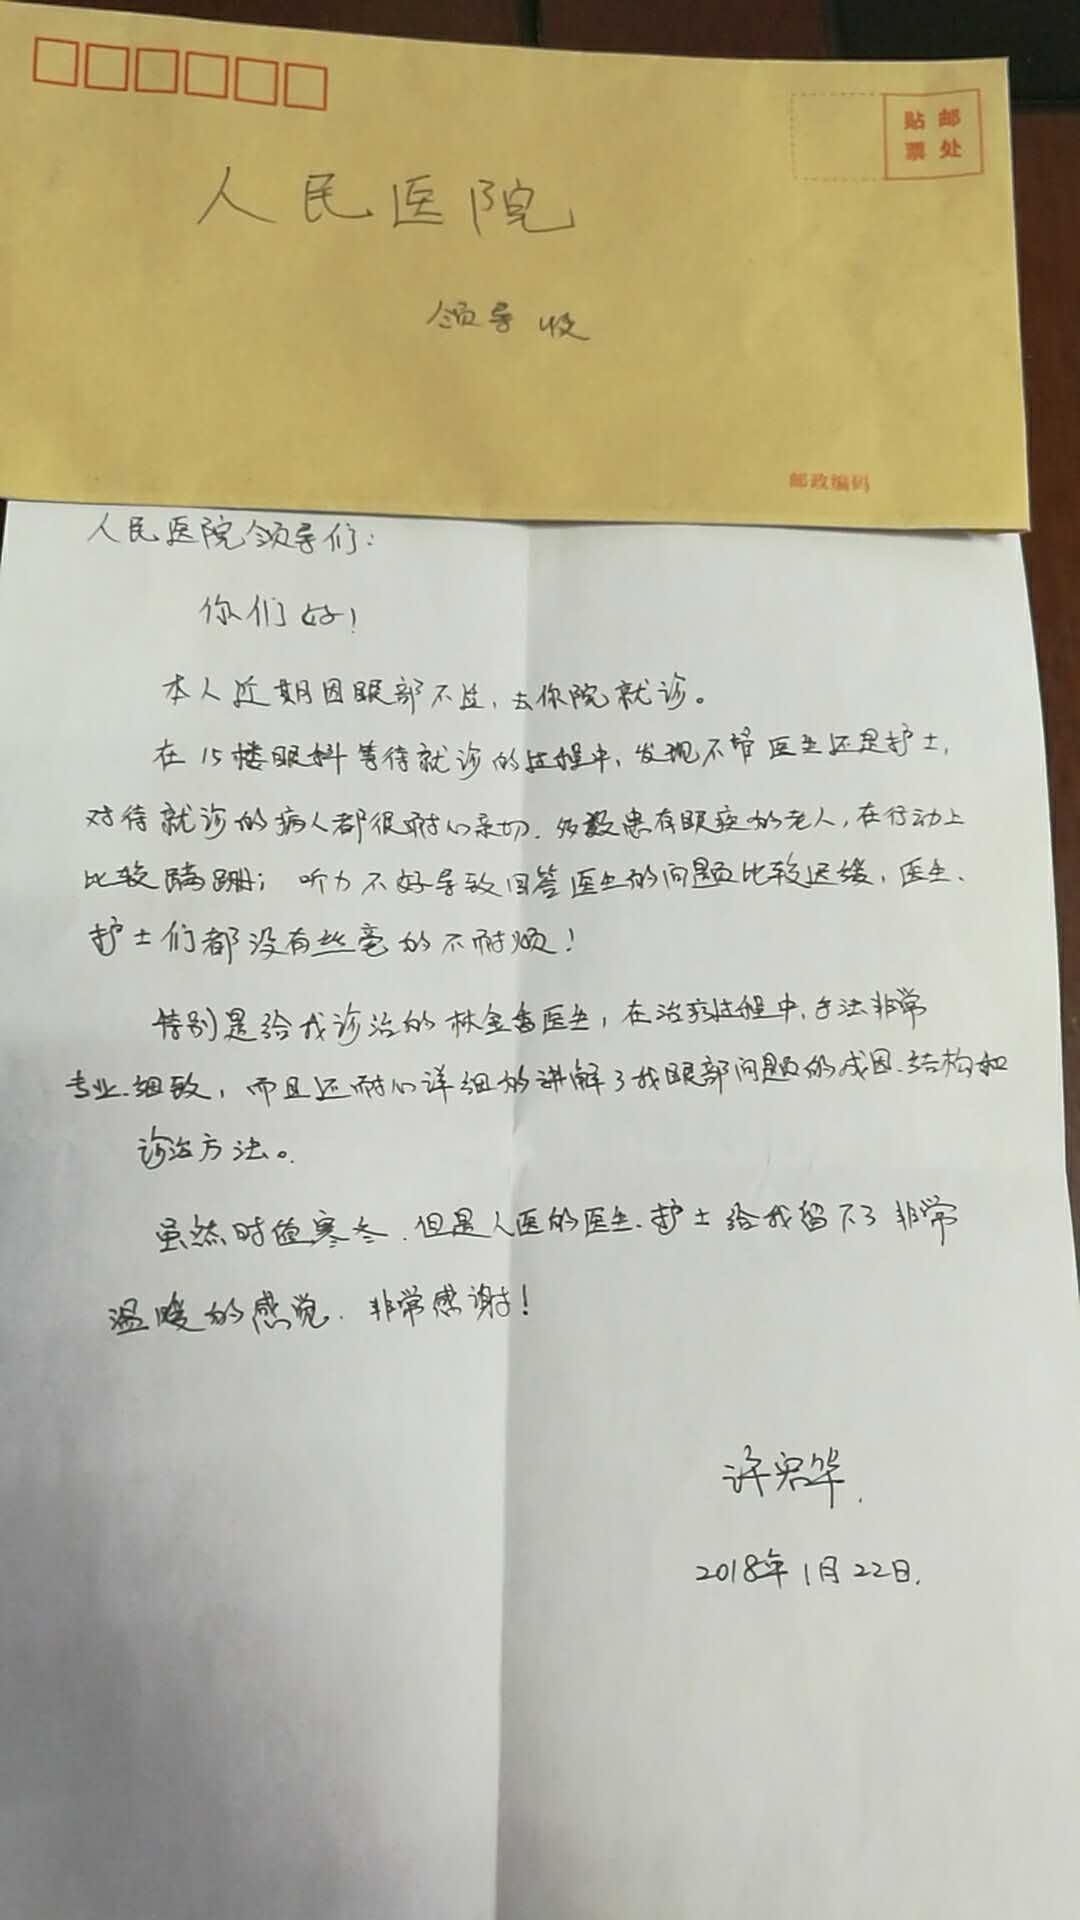 贴邮
票处
人民医院
领导收
邮政编码
人民医院领导们：
你们好！
本人近期因眼部不适，去你院就诊。
在15楼眼科等待就诊的过程中，发现不管医生还是护士，
对待就诊的病人都很耐心亲切．多数患有眼疾的老人，在行动上
比较蹒跚；听力不好导致回答医生的问题比较迟缓，医生、
护士们都没有丝毫的不耐烦！
特别是给我诊治的林金香医生，在治疗过程中，手法非常
专业、细致，而且还耐心详细的讲解了我眼部问题的成因、结构和
诊治方法。
虽然时值寒冬．但是人医的医生、护士给我留下了非常
温暖的感觉．非常感谢！
许君华．
2018年1月22日．